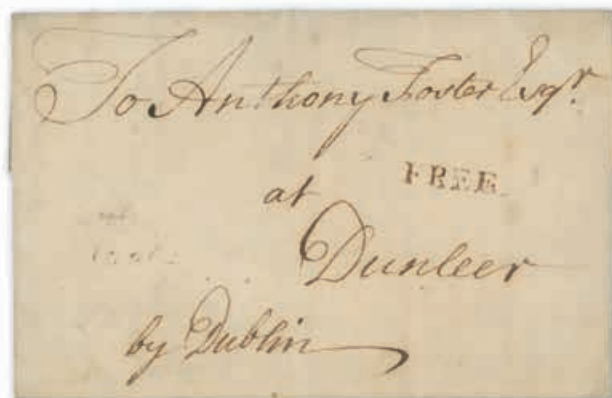 To Anthony Foster Esqr.
FREE
at
Dunleer
by Dublin